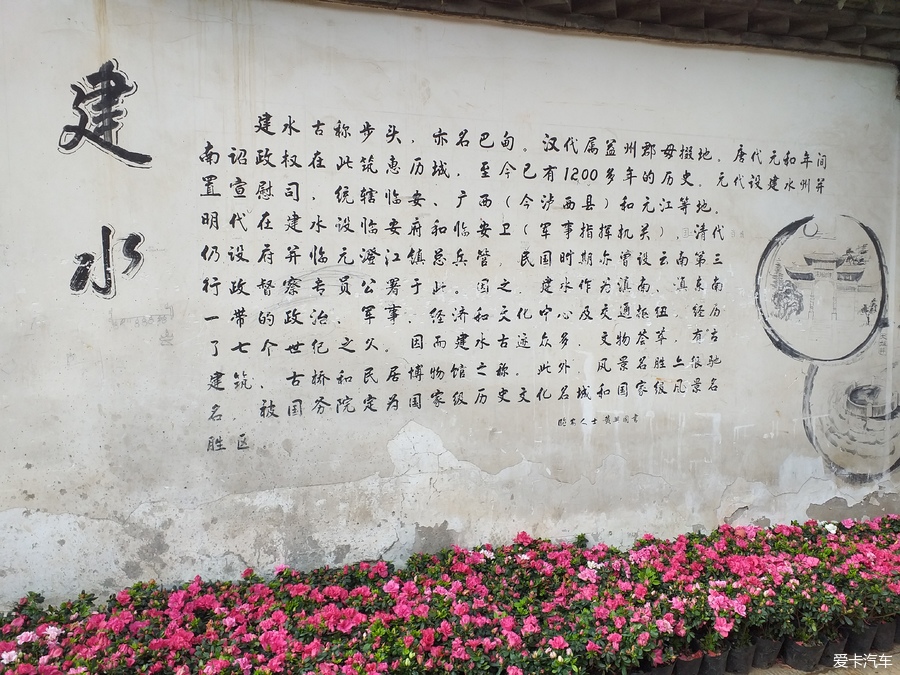 建水
建水古称步头，亦名巴甸。汉代属益州郡毋掇地，唐代元和年间
南诏政权在此筑惠历城，至今已有1200多年的历史。元代设建水州并
置宣慰司，统辖临安、广西（今泸西县）和元江等地。
明代在建水设临安府和临安卫（军事指挥机关），清代
仍设府并临元澄江镇总兵管，民国时期亦曾设云南第三
行政督察专员公署于此。因之，建水作为滇南、滇东南
一带的政治、军事、经济和文化中心及交通枢纽，经历
了七个世纪之久。因而建水古迹众多，文物荟萃，有"古
建筑、古桥和民居博物馆之称，此外，风景名胜
名，被国务院定为国家级历史文化名城和国家级风景名
胜区
爱卡汽车